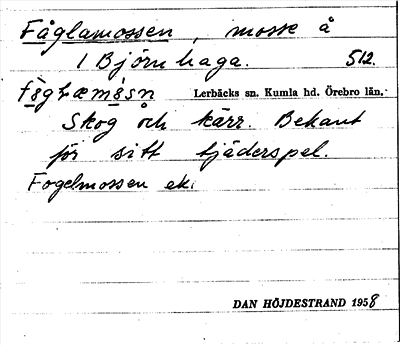 Fåglamossen, mosse å
1 Björnhaga. 512.
Lerbäcks sn. Kumla hd. Örebro län.
Skog och kärr. Bekant
för sitt tjäderspel.
Fogelmossen ek.
DAN HÖJDESTRAND 1958